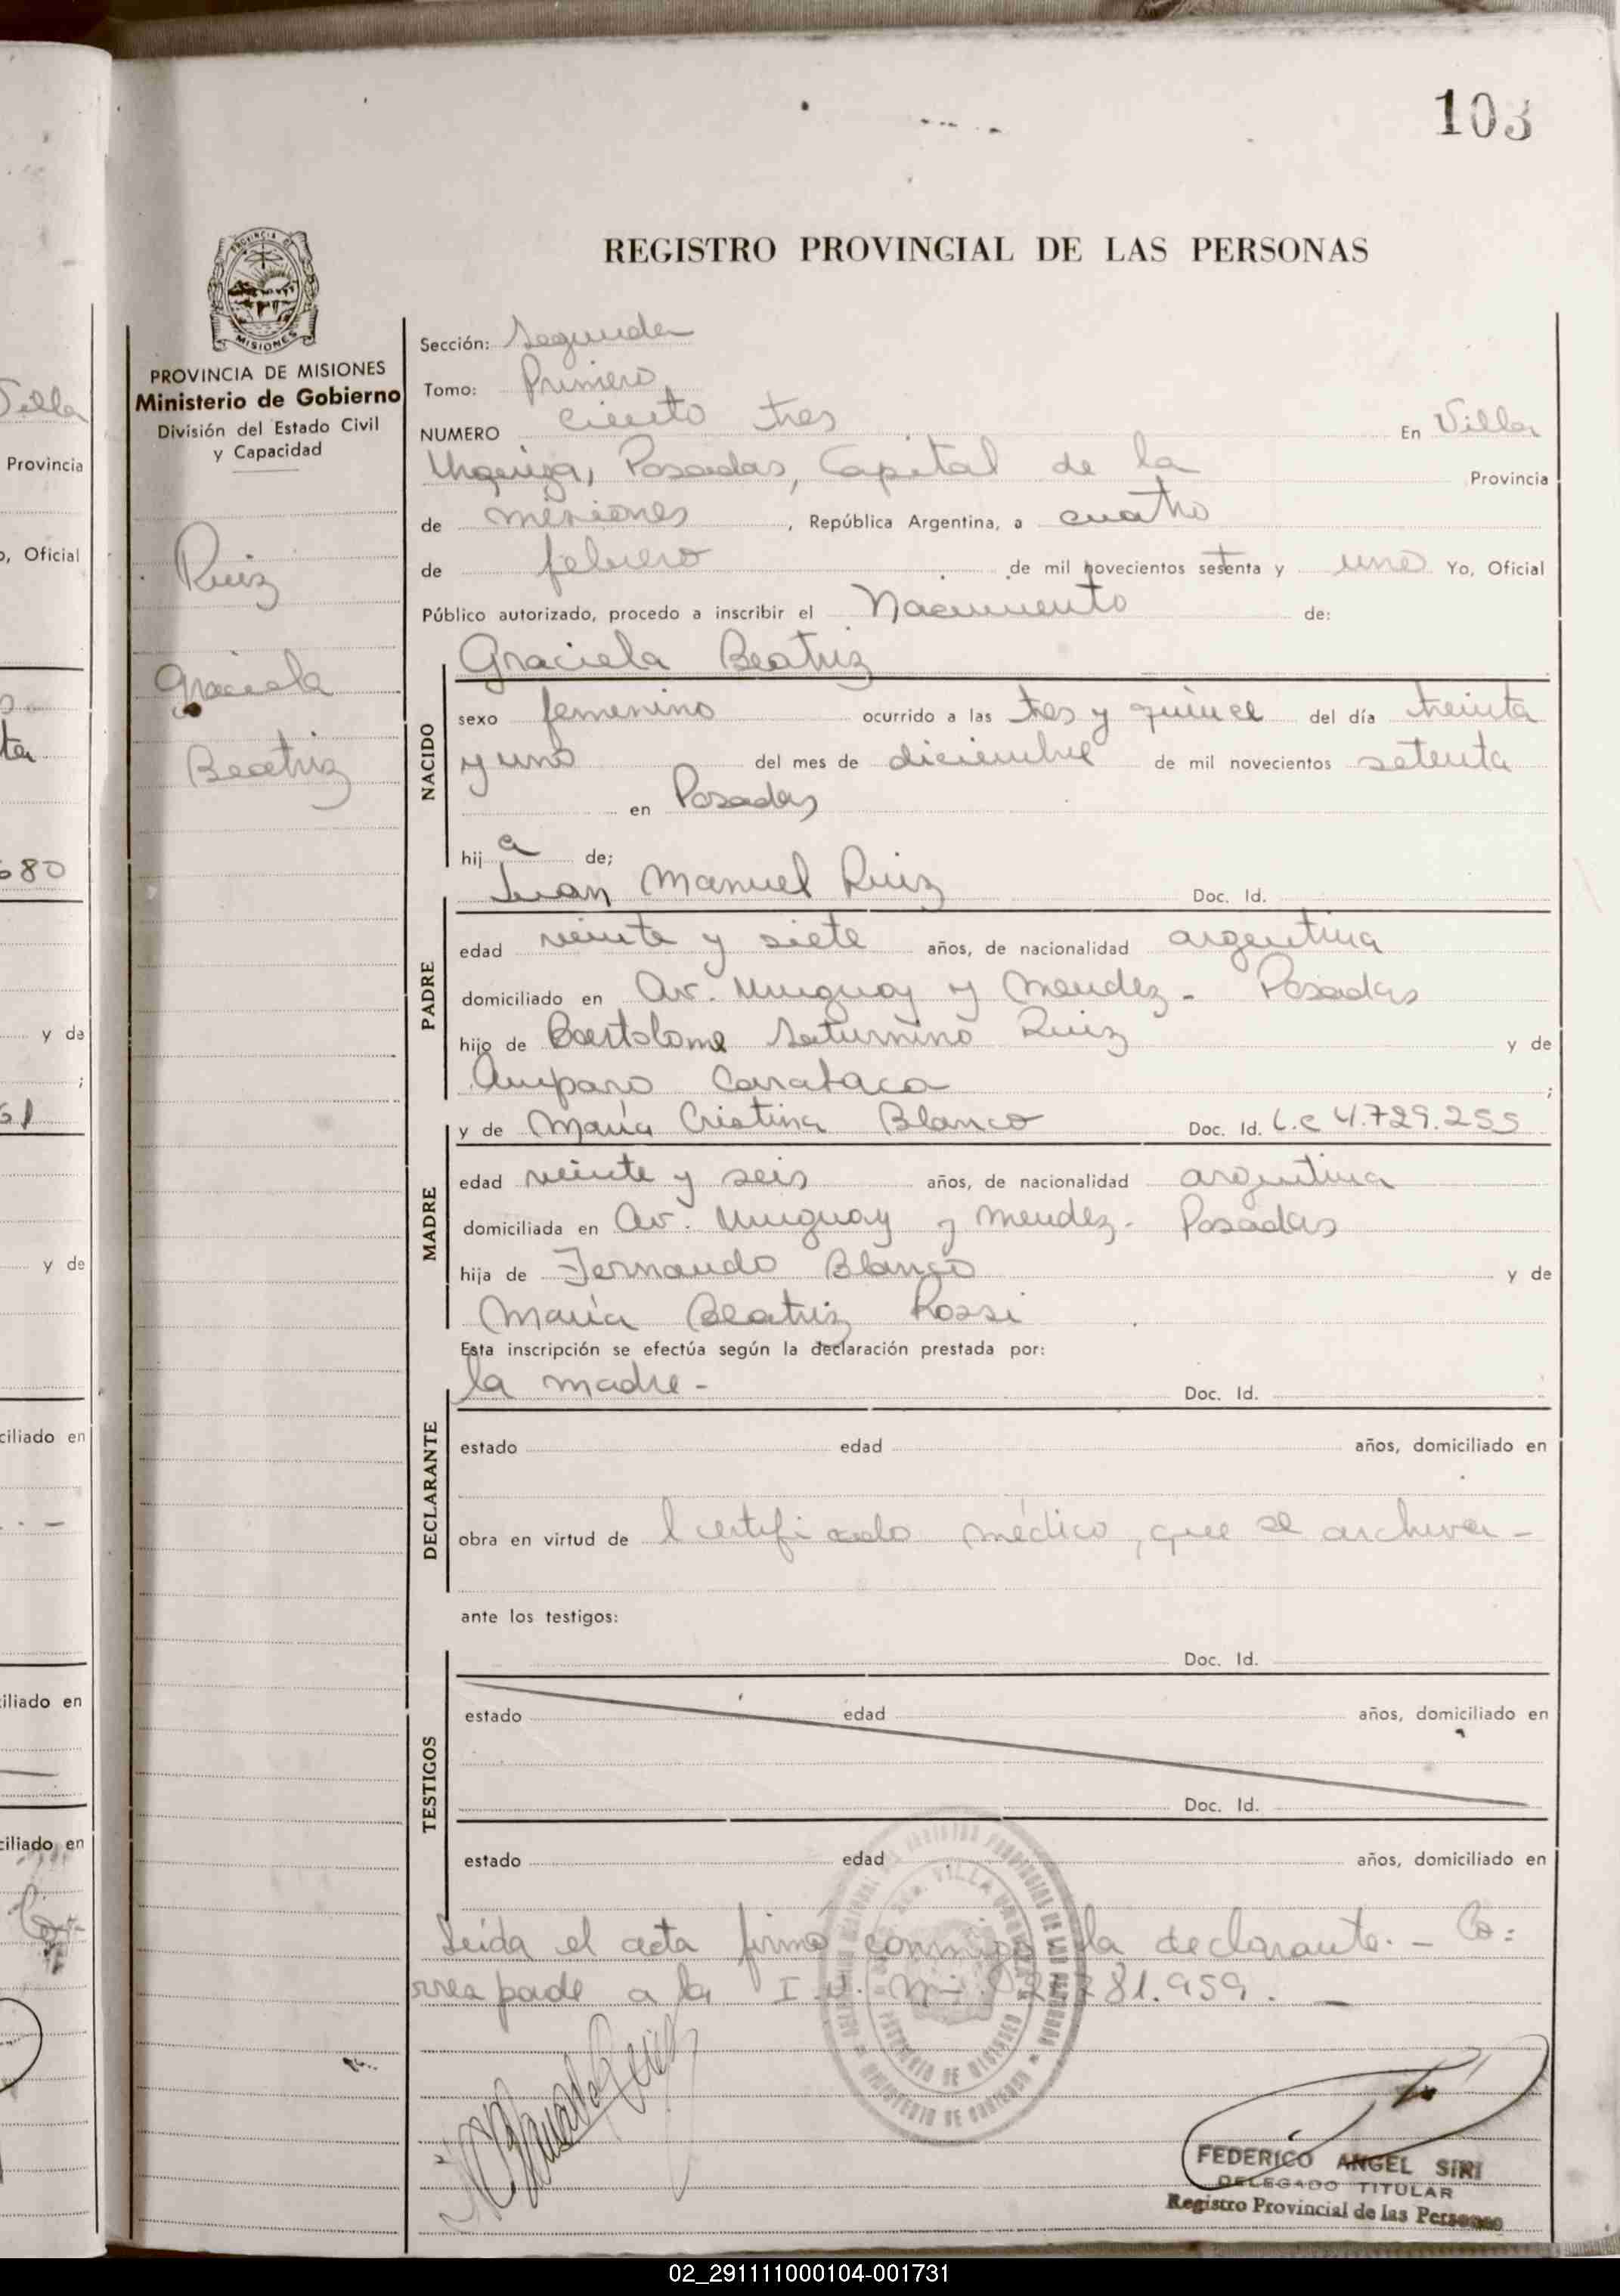 103
REGISTRO PROVINCIAL DE LAS PERSONAS
PROVINCIA DE MISIONES
MISIONES
PROVINCIA DE MISIONES
Ministerio de Gobierno
División del Estado Civil
y Capacidad
Ruiz
Graciela
Beatriz
Sección: Segunda
Tomo: Primero
NUMERO ciento tres En Villa
Urquiza, Posadas, Capital de la Provincia
de misiones, República Argentina, a cuatro
de febrero de mil novecientos setenta y uno Yo, Oficial
Público autorizado, procedo a inscribir el Nacimiento de:
Graciela Beatriz
NACIDO
sexo femenino ocurrido a las tres y quince del día treinta
y uno del mes de diciembre de mil novecientos setenta
en Posadas
hija de;
Juan Manuel Ruiz Doc. Id.
PADRE
edad veinte y siete años, de nacionalidad argentina
domiciliado en Av. Uruguay y Mendez - Posadas
hijo de Bartolome Saturnino Ruiz y de
Amparo ;
y de María Cristina Blanco Doc. Id. L.C 4.729.255
MADRE
edad veinte y seis años, de nacionalidad argentina
domiciliada en Av. Uruguay y mendez - Posadas
hija de Fernando Blanco y de
María Beatriz Rossi
Esta inscripción se efectúa según la declaración prestada por:
la madre - Doc. Id.
DECLARANTE
estado edad años, domiciliado en
obra en virtud de l certificado médico, que se archiva -
ante los testigos:
Doc. Id.
TESTIGOS
estado edad años, domiciliado en
Doc. Id.
estado edad años, domiciliado en
Leída el acta firmó conmigo la declarante. - Co=
rresponde a la I.U. 281.959. -
FEDERICO ANGEL SIRI
DELEGADO TITULAR
Registro Provincial de las Personas
Villa
Provincia
o, Oficial
680
y de
;
61
y de
ciliado en
iliado en
ciliado en
02_291111000104-001731